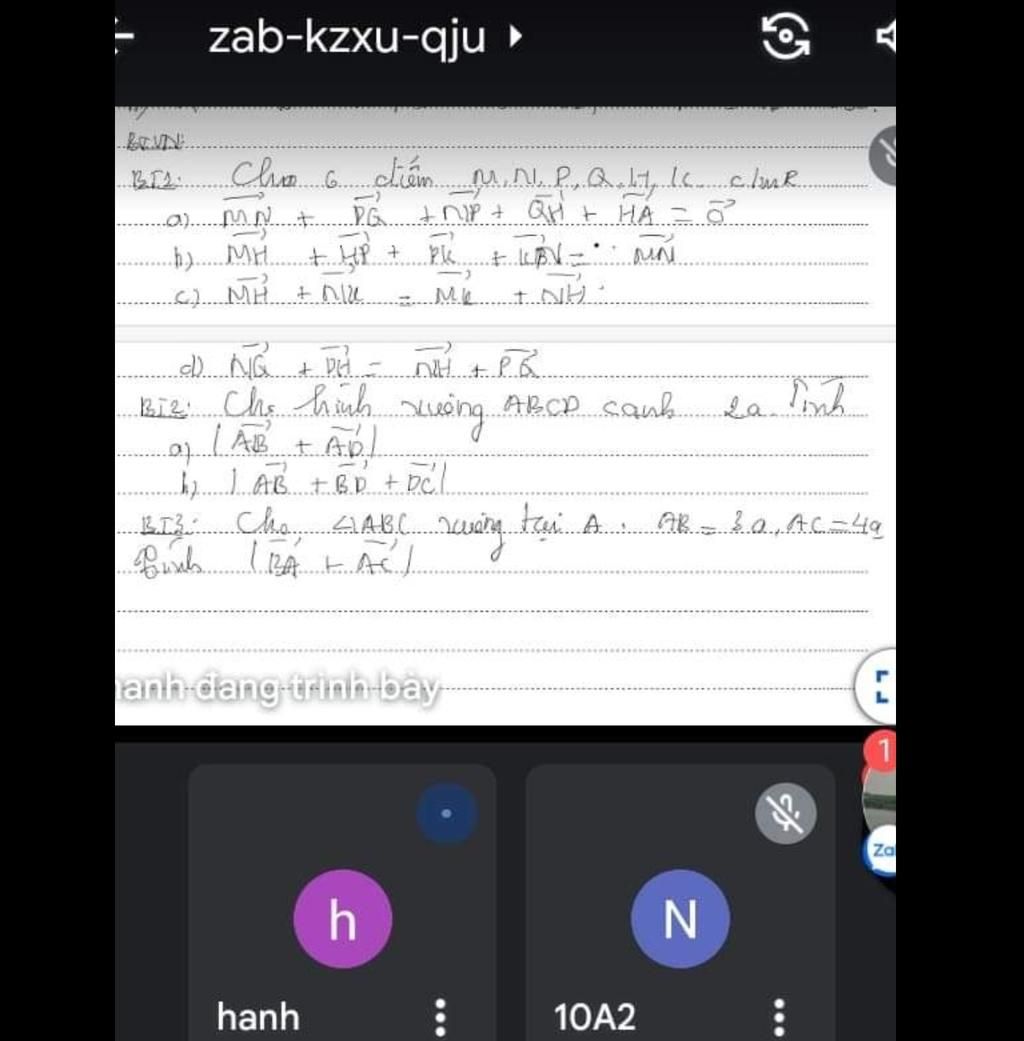 zab-kzxu-qju
BTVN:
BT1: Cho 6 điểm M, N, P, Q, H, K. c/mR
a) MN + PQ + NP + QH + HA = 0
b) MH + HP + PK + KN = MN
c) MH + NK = MK + NH
d) NQ + PH = NH + PQ
BT2: Cho hình vuông ABCD cạnh 2a. Tính
a) |AB + AD|
b) |AB + BD + DC|
BT3: Cho ΔABC vuông tại A. AB = 3a, AC = 4a
Tính |BA + AC|
anh đang trình bày
1
Za
h
N
hanh
10A2